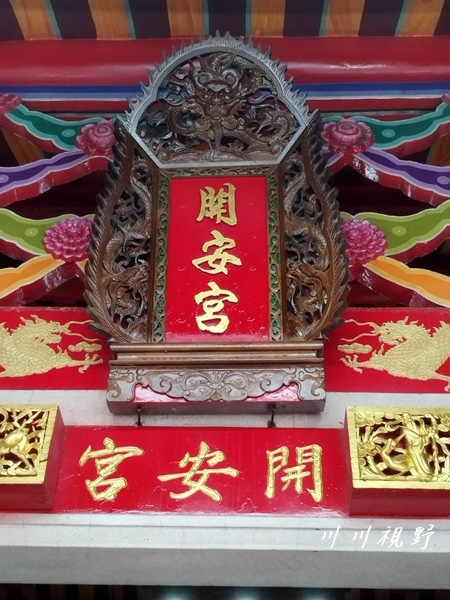 開安宮
開安宮
川川視野